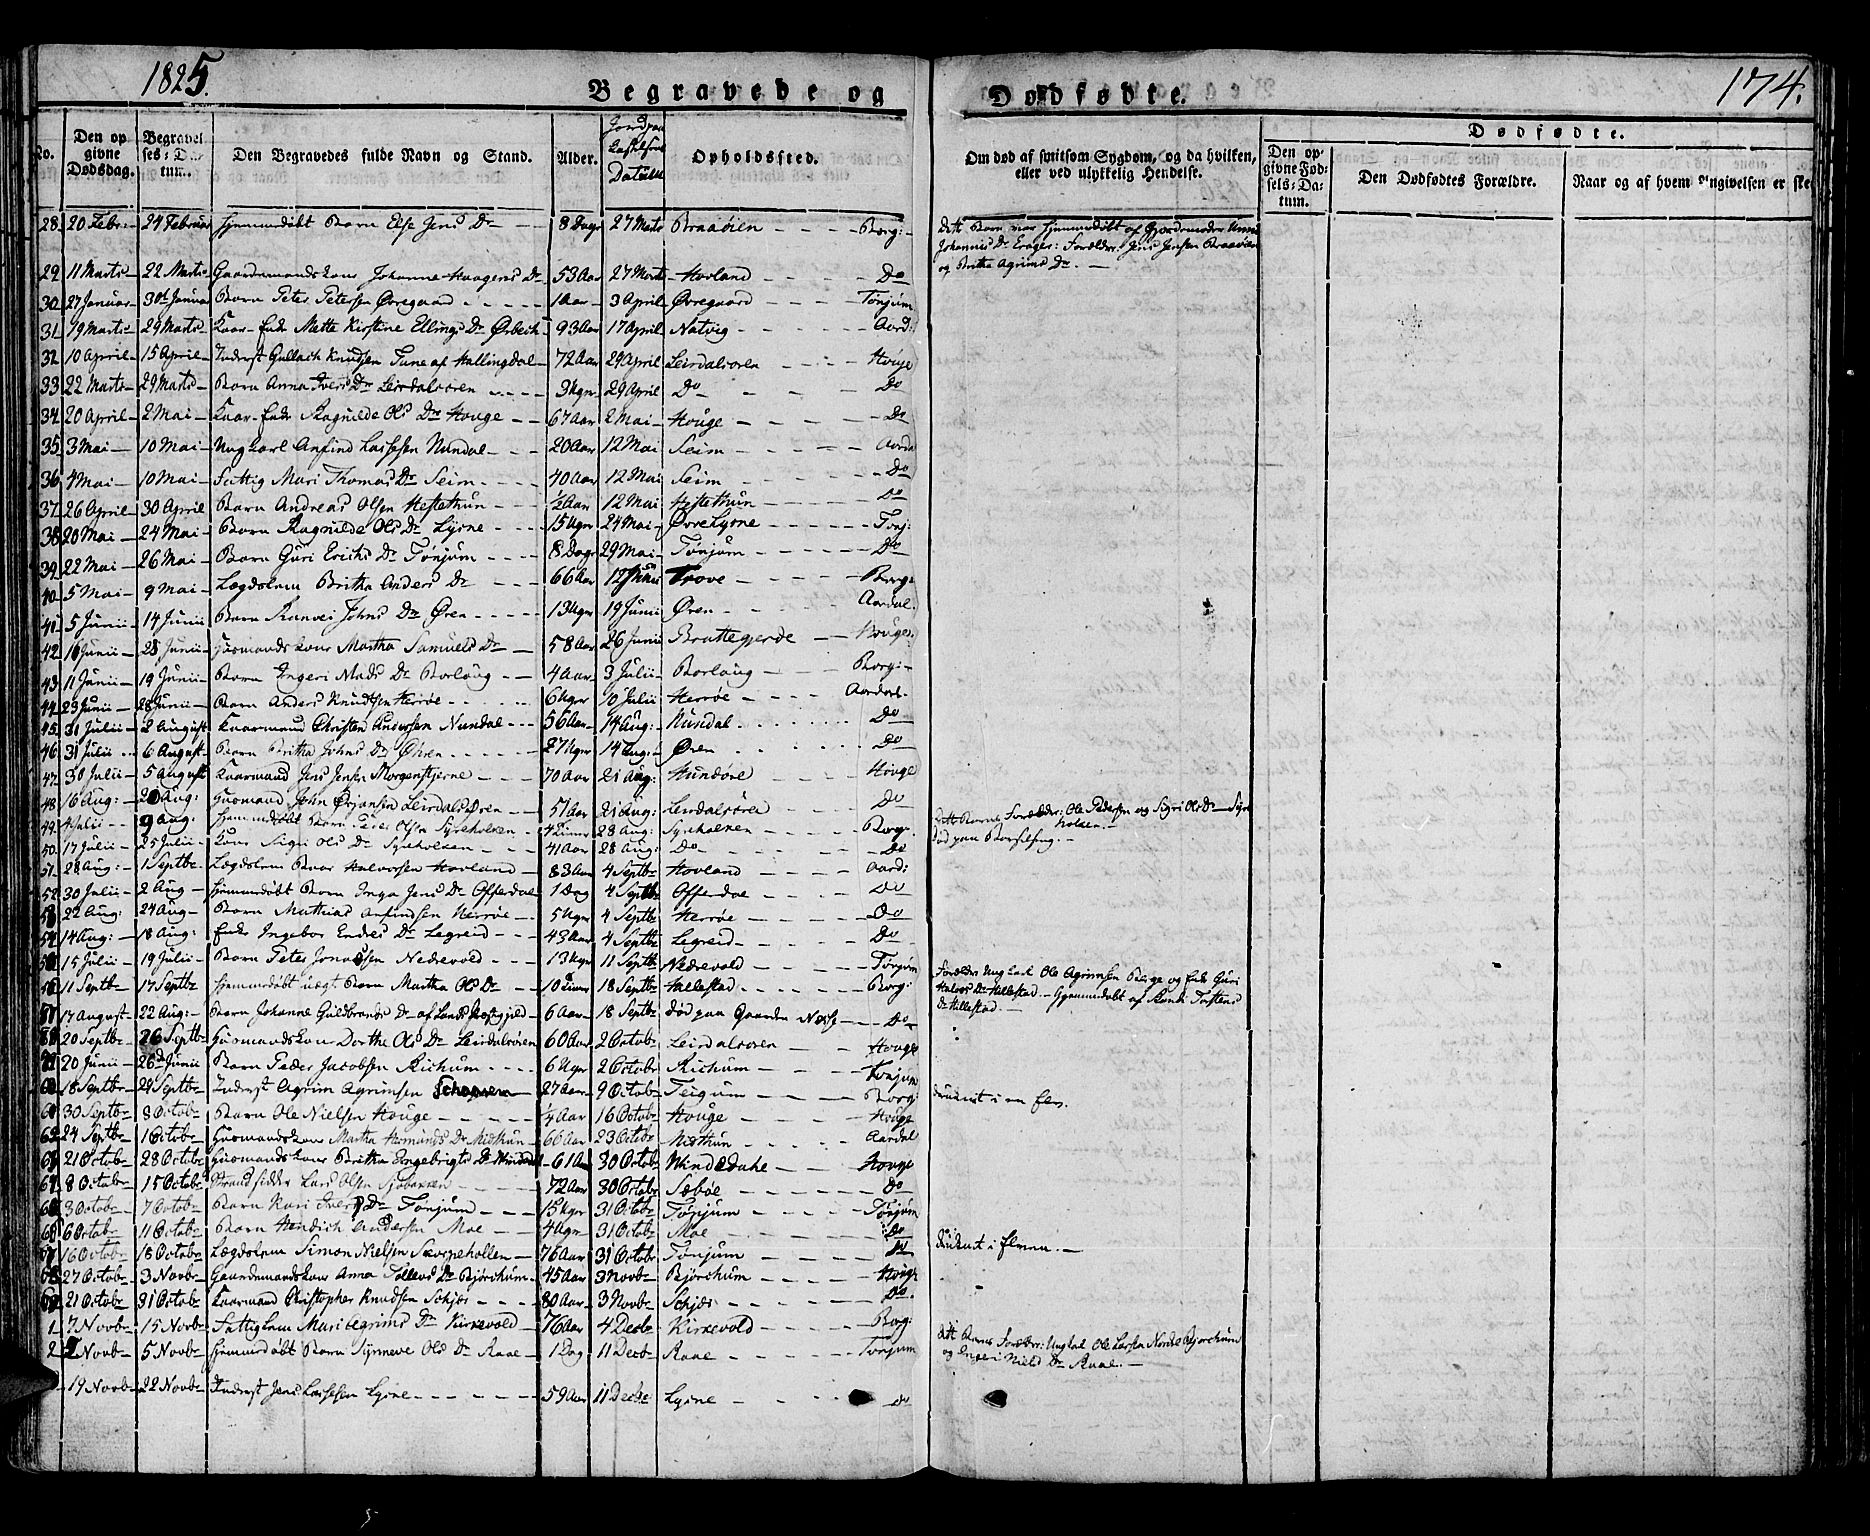 1825.
Begravede og
Dødfødte.
174.
No.
Den opgivne Dødsdag.
Begravelses-Datum.
Den Begravedes fulde Navn og Stand.
Alder.
Jordpaakastelses Datum
Opholdssted.
Om død af smitsom Sygdom, og da hvilken, eller ved ulykkelig Hendelse.
Dødfødte.
Den opgivne Fødsels-Datum.
Den Dødfødtes Forældre.
Naar og af hvem Angivelsen er
28 20 Febr: 24 Februar Hjemmedøbt Barn Else Jens Dr 8 Dage 27 Marts Braaðien Borg:
Dett Barn var hjemmedøbt af Gjordemoder Anna
Johannis Dr Forældre: Jens Jensen
og Britha Agrims Dr
29 11 Marts 22 Marts Gaardemandskone Johanne Haagens Dr 53 Aar 27 Marts Hovland Do
30 27 Januar 30 Januar Barn Peter Petersen Øvregaard 1 Aar 3 April Øvregaard Tønjum
31 19 Marts 29 Marts Kaar-Enke Mette Kirstine Ellings Dr Ørbech 93 Aar 17 April Natvig Aard:
32 10 April 15 April Inderst Gullach Knudsen Tune af Hallingdal 72 Aar 29 April Leirdalsøren Houge
33 22 Marts 29 Marts Barn Anna Ivers Dr Leirdalsøren 3 Ugr 29 April Do Do
34 20 April 2 Mai Kaar-Enke Ragnilde Ols Dr Houge 67 Aar 2 Mai Houge Do
35 3 Mai 10 Mai Ung Karl Anfind Lassesen Nundal 20 Aar 12 Mai Seim Aardal
36 4 Mai 10 Mai Fattig Mari Thomas Dr Seim 40 Aar 12 Mai Seim Do
37 26 April 30 April Barn Andreas Olsen Hestethun ½ Aar 12 Mai Hestethun Do
38 20 Mai 24 Mai Barn Ragnilde Ols Dr Lysne 15 Ugr 24 Mai Øvrelysne Tonj:
39 22 Mai 26 Mai Barn Guri Erichs Dr Tønjum 8 Dage 29 Mai Tønjum Do
40 5 Mai 9 Mai Lægdslem Britha Anders Dr 66 Aar 12 Junii Trove Borg:
41 5 Junii 14 Junii Barn Ranvei Johns Dr Øren 13 Ugr 19 Junii Øren Aardal
42 16 Junii 28 Junii Huusmandskone Martha Samuels Dr 58 Aar 26 Junii Brattegjerde Houge:
43 11 Junii 19 Junii Barn Ingeri Mads Dr Borlaug 4 Aar 3 Julii Borlaug Borg:
44 23 Junii 28 Junii Barn Anders Knudsen Herrøe 6 Ugr 10 Julii Herrøe Aardal
45 31 Julii 2 August Kaarmand Christen Andersen Nundal 56 Aar 14 Aug: Nundal Do
46 31 Julii 6 August Barn Britha Johns Dr Øren 27 Ugr 14 Aug: Øren Do
47 30 Julii 5 August Kaarmand Jens Jensen Morgenstjerne 70 Aar 21 Aug: Hunderi Houge
48 16 Aug: 20 Aug: Huusmand John Ørjansen Leirdalsøren 51 Aar 21 Aug: Leirdalsøren Do
49 4 Julii 9 Aug: Hjemmedøbt Barn Peder Olsen Syreholven 4 Timer 28 Aug: Syreholven Borg:
Dett Barns Forældre: Ole Pedersen og Sigri Ols Dr Syreholven
50 17 Julii 25 Julii Kone Sigri Ols Dr Syreholven 41 Aar 28 Aug: Do Do
død paa Barselseng.
51 28 Aug: 1 Septbr Lægdslem Halvorsen Hovland 83 Aar 4 Septbr Hovland Aard:
52 30 Julii 2 Aug Hjemmedøbt Barn Inga Jens Dr Offerdal 1 Dag 4 Septbr Offerdal Do
53 22 Aug: 24 Aug Barn Mathias Anfindsen Herrøe 5 Ugr 4 Septbr Herrøe Do
54 14 Aug: 18 Aug: Enke Ingebor Endres Dr Legreid 43 Aar 4 Septbr Legreid Do
55 15 Julii 19 Julii Barn Peter Jonassen Nedrevold 13 Ugr 11 Septbr Nedrevold Tønjum
56 11 Septbr 17 Septbr Hjemmedøbt uægt Barn Martha Ols Dr 10 Timer 18 Septbr Hellestad Borg:
Forældre Ung Karl Ole Agrimsen Berge og Enke Guri
Halvors Dr Hellestad. Hjemmedøbt af Torstens
Dr Hellestad.
57 17 August 22 Aug: Barn Johanne Guldbrands Dr af Lands Præstegjeld 6 Aar 18 Septbr død paa Gaarden Næse Do
58 20 Septbr 26 Septbr Huusmandskone Dorthe Ols Dr Leirdalsøren 60 Aar 2 Octob: Leirdalsøren Houge
59 20 Junii 26 Junii Barn Peder Jacobsen Richum 6 Ugr 2 Octobr Richum Tønjum
60 18 Septbr 29 Septbr Inderst Agrim Agrimsen 27 Aar 9 Octobr Teigum Borg:
druknet i en Elv.
61 30 Septbr 8 Octob Barn Ole Nielsen Houge ¼ Aar 16 Octobr Houge Houge
62 24 Septbr 1 Octobr Huusmandskone Martha Asmunds Dr Nisthun 66 Aar 23 Octobr Nisthun Aardal
63 21 Octob 28 Octobr Huusmandskone Britha Engebrigts Dr 61 Aar 30 Octobr Windedahl Houge
64 8 Octobr 15 Octobr Strandsidder Lars Olsen 72 Aar 30 Octobr Sæbøe Do
65 3 Octobr 7 Octobr Barn Kari Ivers Dr Tønjum 15 Ugr 31 Octobr Tønjum Tønjum
66 6 Octobr 11 Octobr Barn Hendrich Andersen Moe 4 Ugr 31 Octobr Moe Do
67 16 Octobr 18 Octobr Lægdslem Simon Nielsen Skorpehollen 76 Aar 31 Octobr Tønjum Do
druknet i Elven.
68 27 Octob 3 Novbr Gaardemandskone Anna Tollevs Dr Bjørchum 45 Aar 3 Novbr Bjørchum Houge
69 21 Octobr 31 Octobr Kaarmand Christopher Knudsen Schjær 80 Aar 3 Novbr Schjær Do
1 7 Novbr 15 Novbr Fattiglem Mari Agrims Dr Kirkevold 76 Aar 4 Decbr Kirkevold Borg:
2 2 Novbr 5 Novbr Hjemmedøbt Barn Synneve Ols Dr Raae 1 Dag 11 Decbr Raae Tonjum
Dett Barns Forældre: Ungkal Ole Larsen Nordre Bjørchum
og Ingeri Niels Dr Raae.
19 Novbr 22 Novbr Inderst Jens Lassesen Lysne 59 Aar 11 Decbr Lysne Do